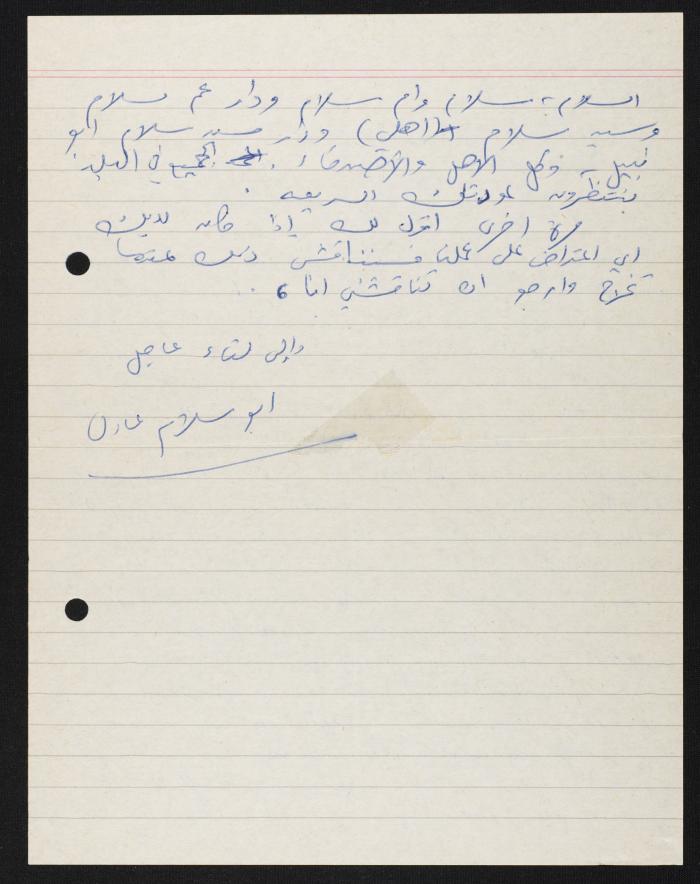 السلام، سلام وام سلام ودار عم سلام
وسيد سلام (اهلي) ودار سيد سلام ابو
نبيل، وكل الاهل والأصدقاء. الجميع في البلد
ينتظرون عودتك السريعه.
مرة اخرى اقول لك إذا كان لديك
اي اعتراض على عملنا فسنناقش ذلك عندما
تخرج وارجو ان تناقشني انا.
والى لقاء عاجل
ابو سلام عادل